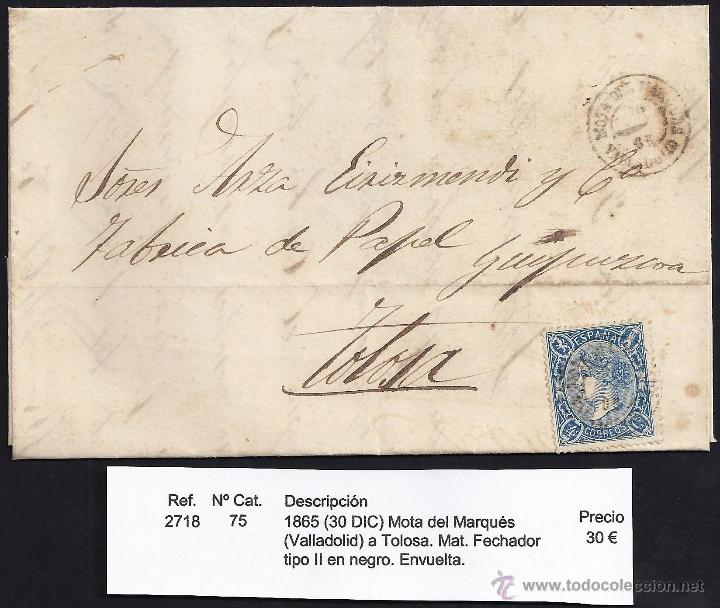 MOTA DEL MARQUES
65
VALLADOLID
Sõres Arza Eizirmendi y Ca
Fabrica de Papel Guipuzcoa
Tolosa
ESPAÑA
4 Cs
CORREOS
Ref. Nº Cat. Descripción Precio
2718 75 1865 (30 DIC) Mota del Marqués 30 €
(Valladolid) a Tolosa. Mat. Fechador
tipo II en negro. Envuelta.
www.todocoleccion.net